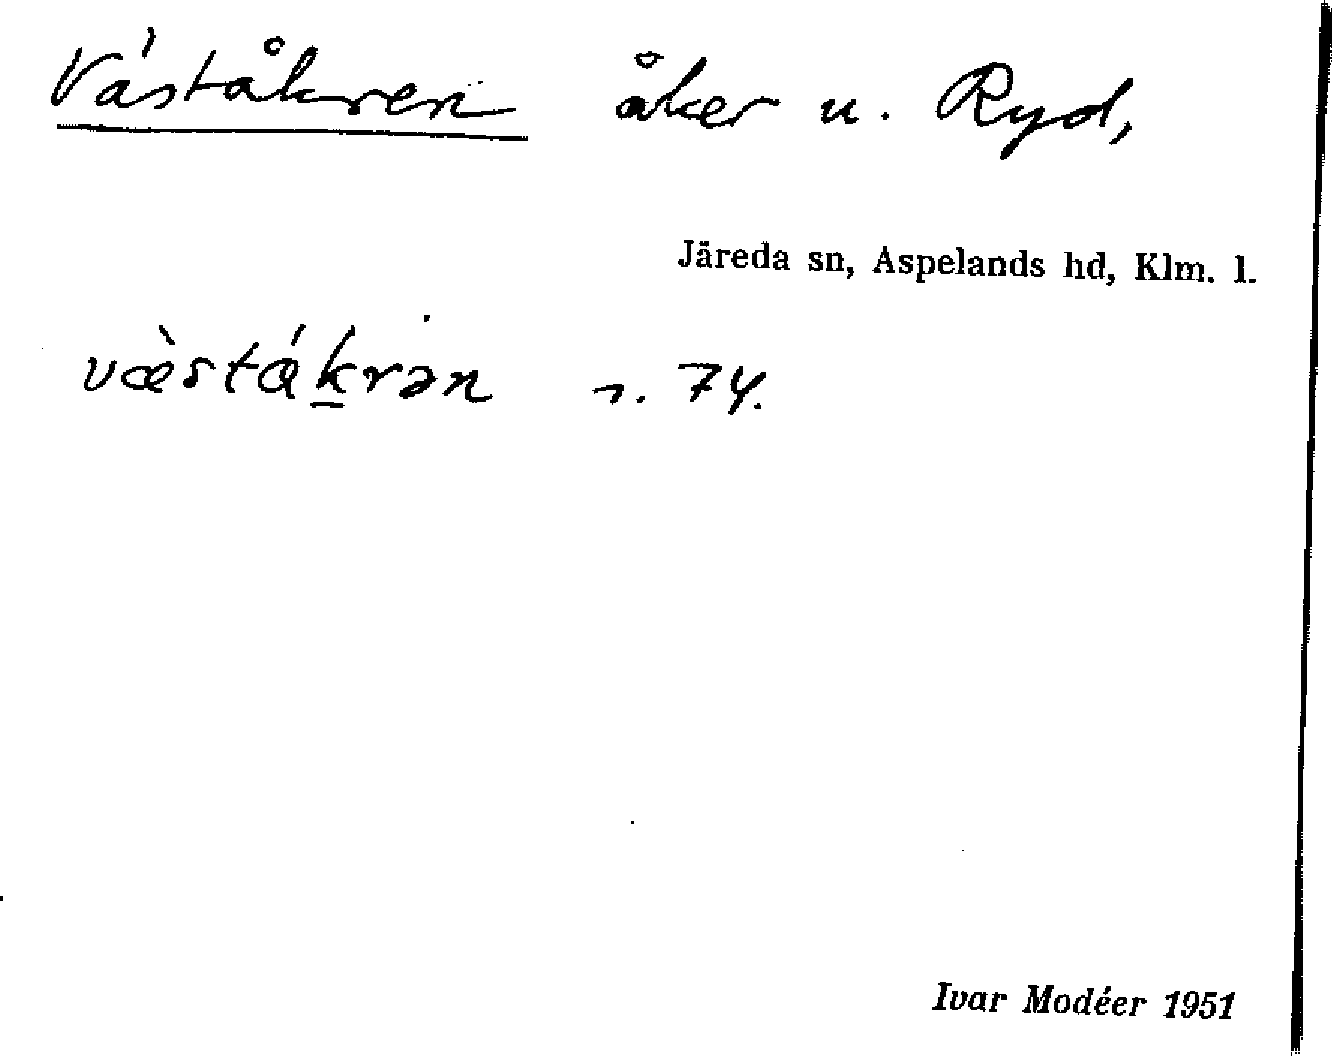 Väståkren åker u. Ryd,
Järeda sn, Aspelands hd, Klm. l.
væ̀stákrən s. 74.
Ivar Modéer 1951